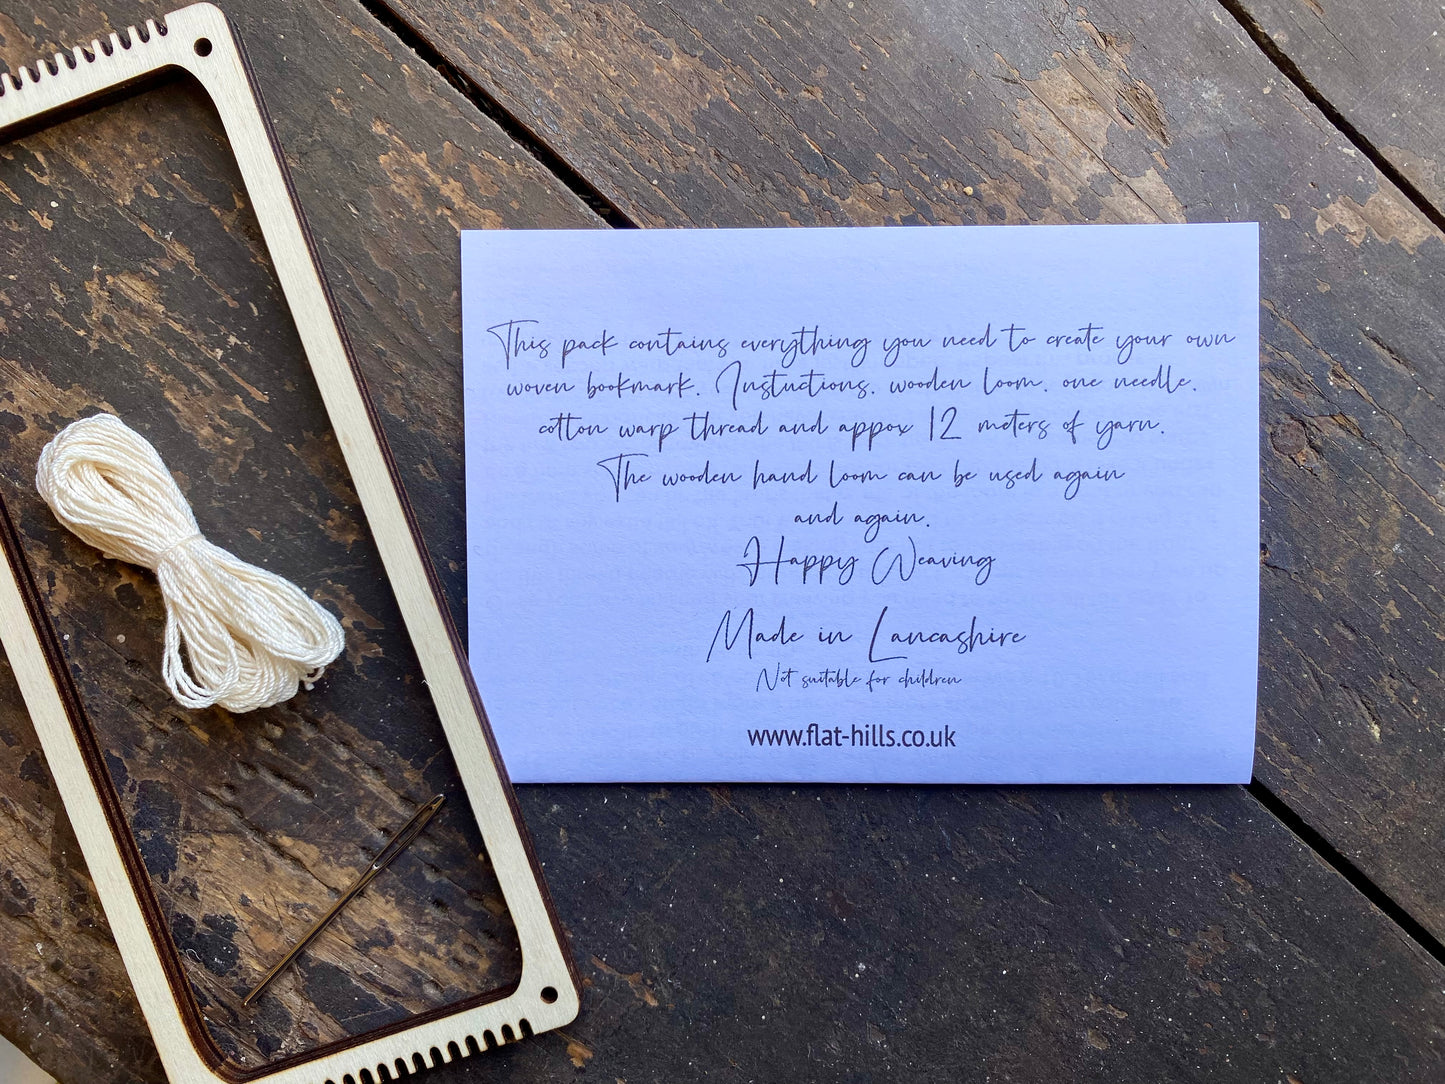 This pack contains everything you need to create your own
woven bookmark. Instuctions. wooden loom. one needle.
cotton warp thread and appox 12 meters of yarn.
The wooden hand loom can be used again
and again.
Happy Weaving
Made in Lancashire
Not suitable for children
www.flat-hills.co.uk